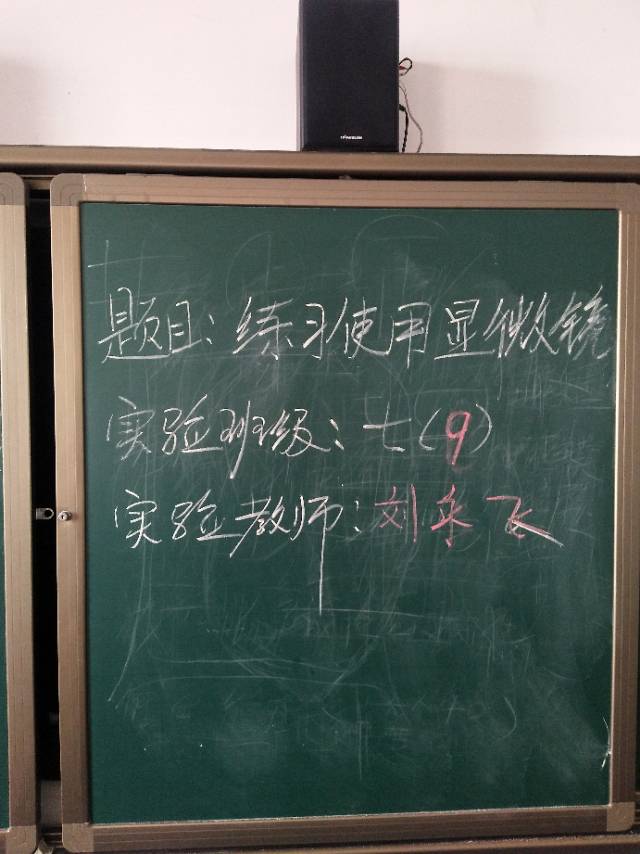 题目:练习使用显微镜
实验班级:七(9)
实验教师:刘冬飞